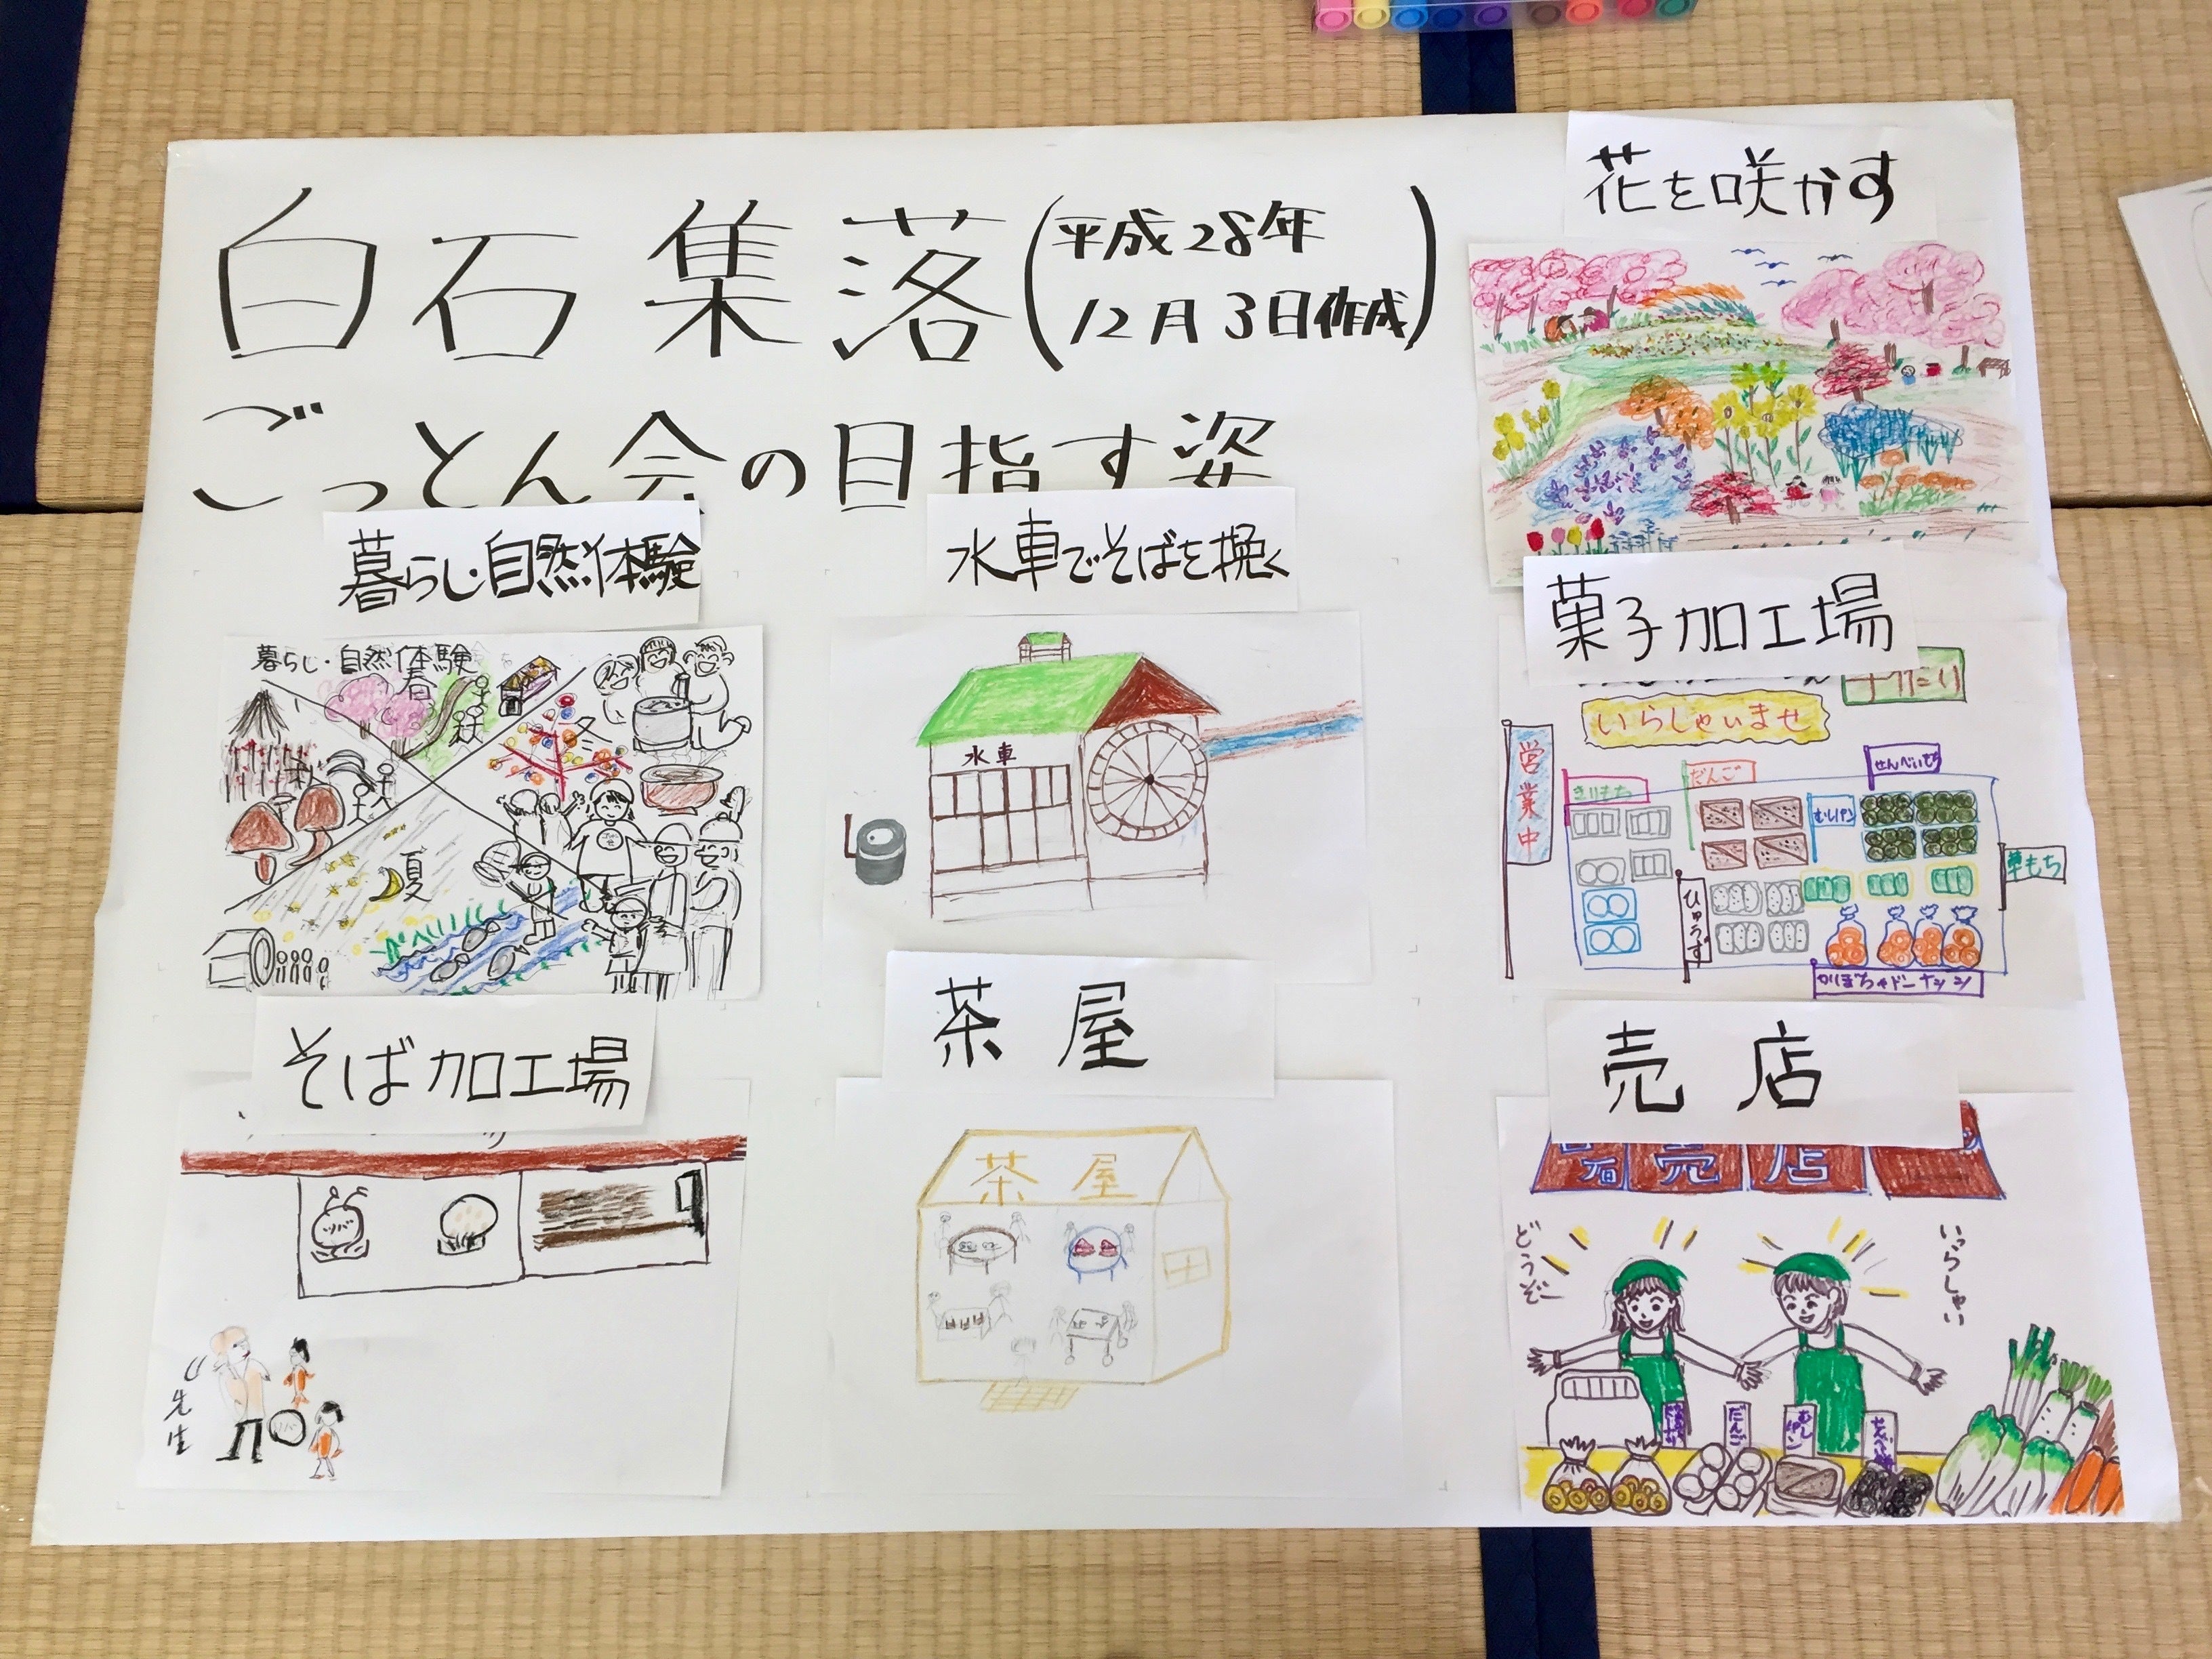 白石集落
(平成28年
12月3日作成)
ごっとん会の目指す姿
花を咲かす
暮らし・自然体験
暮らし・自然体験
春
夏
水車でそばを挽く
水車
菓子加工場
いらしゃいませ
営業中
きりもち
だんご
むしパン
せんべいもち
草もち
ひゅうず
かぼちゃドーナツ
そば加工場
先生
茶屋
茶屋
売店
石売店
どうぞー
いらっしゃい
だんご
むしパン